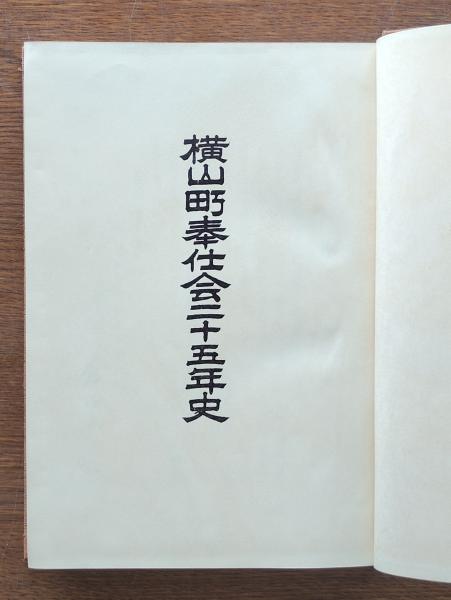 横山町奉仕会二十五年史